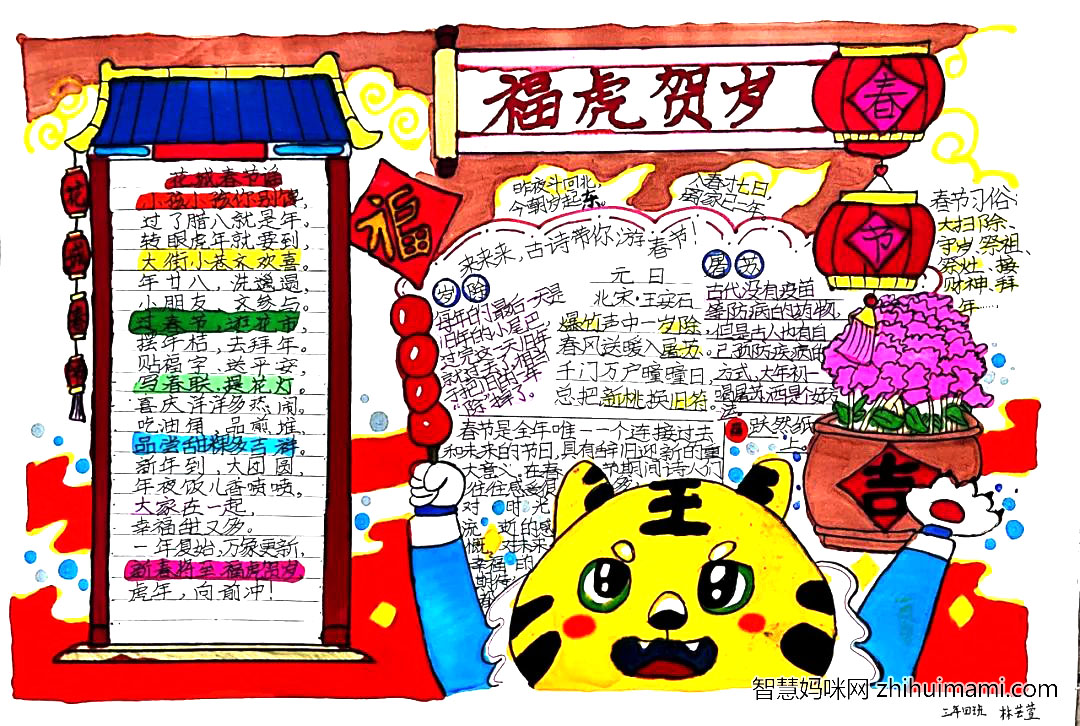 福虎贺岁
春
节
福
吉
王
花城春节谣
小孩小孩你别馋，
过了腊八就是年。
转眼虎年就要到，
大街小巷交欢喜。
年廿八，洗邋遢，
小朋友
过春节，逛花市，
摆年桔，去拜年。
贴福字、送平安，
写春联、提花灯。
喜庆洋洋多热闹。
吃油角、品煎堆，
品尝甜粿多吉祥。
新年到，大团圆，
年夜饭儿香喷喷，
大家在一起，
幸福甜又多。
一年复始，万家更新，
新春将至福虎贺岁
虎年，向前冲！
昨夜斗回北，
今朝岁起东。
入春才七日
来来来，古诗带你游春节！
岁除
每年的最后一天是
旧年的小尾巴，
过完这一天旧年
元日
北宋·王安石
爆竹声中一岁除，
春风送暖入屠苏。
千门万户曈曈日，
总把新桃换旧符。
屠苏
古代没有疫苗
等防病的药物，
但是古人也有自
己预防疾病的
方式，大年初一
喝屠苏酒是个好方
法
跃然纸
上。
春节是全年唯一一个连接过去
和未来的节日，具有辞旧迎新的重
大意义，在春节期间诗人们
往往感
对时光
流逝的感
慨，对未来
幸福的
期待
春节习俗：
大扫除、
守岁、祭祖、
祭灶、接
财神、拜
年…
智慧妈咪网 zhihuimami.com
三年四班 林芸萱